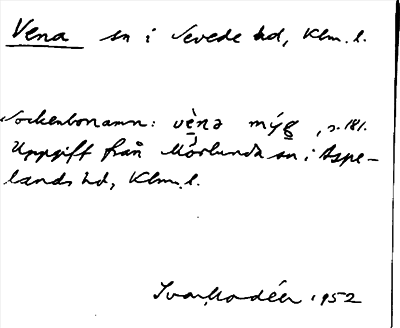 Vena sn i Sevede hd, Klm. l.
Sockenbonamn: vènə mýg, s. 181.
Uppgift från Mörlunda sn i Aspe-
lands hd, Klm. l.
Ivar Modéer 1952